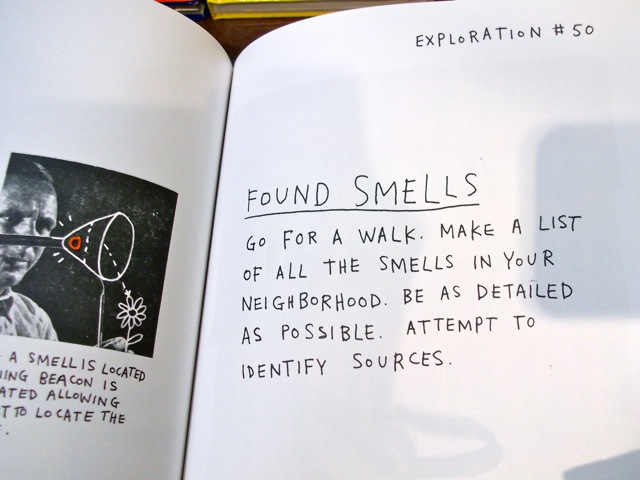 A SMELL IS LOCATED
BEACON IS
ALLOWING
TO LOCATE THE
EXPLORATION #50
FOUND SMELLS
GO FOR A WALK. MAKE A LIST
OF ALL THE SMELLS IN YOUR
NEIGHBORHOOD. BE AS DETAILED
AS POSSIBLE. ATTEMPT TO
IDENTIFY SOURCES.